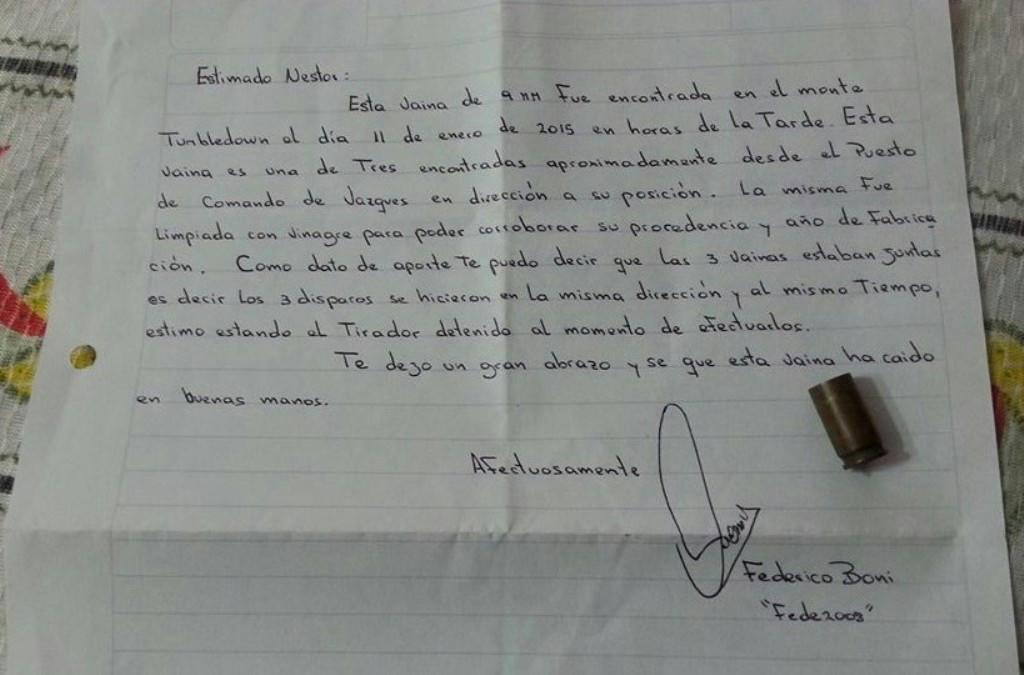 Estimado Nestor:
Esta vaina de 9 mm fue encontrada en el monte
Tumbledown el día 11 de enero de 2015 en horas de la Tarde. Esta
vaina es una de Tres encontradas aproximadamente desde el Puesto
de Comando de Vazques en dirección a su posición. La misma fue
Limpiada con vinagre para poder corroborar su procedencia y año de Fabrica
ción. Como dato de aporte Te puedo decir que las 3 vainas estaban juntas
es decir los 3 disparos se hicieron en la misma dirección y al mismo Tiempo,
estimo estando el Tirador detenido al momento de efectuarlos.
Te dejo un gran abrazo y se que esta vaina ha caido
en buenas manos.
Afectuosamente
Boni
Federico Boni
"Fede2008"